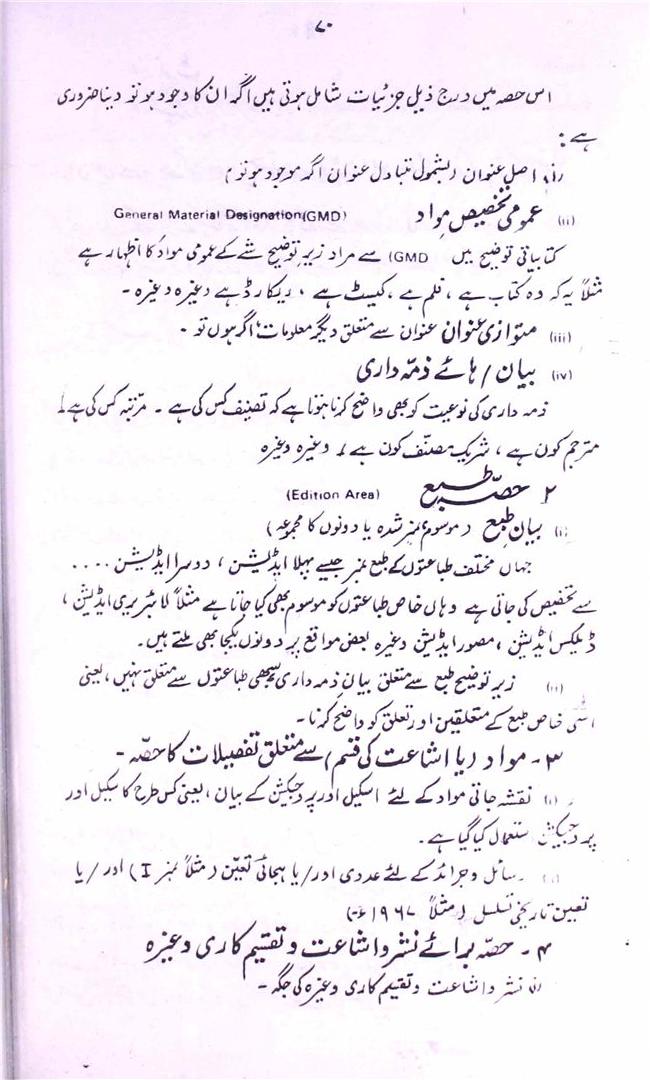 ۷۰
اس حصہ میں درج ذیل جزئیات شامل ہوتی ہیں اگر ان کا وجود ہو تو دینا ضروری
ہے :
(i) اصل عنوان (بشمول متبادل عنوان اگر موجود ہو تو)
(ii) عمومی تخصیص مواد General Material Designation (GMD)
کتابیاتی توضیح میں (GMD سے مراد زیر توضیح شے کے عمومی مواد کا اظہار ہے
مثلاً یہ کہ وہ کتاب ہے ، فلم ہے ، کیسٹ ہے ، ریکارڈ ہے وغیرہ وغیرہ ۔
(iii) متوازی عنوان عنوان سے متعلق دیگر معلومات ، اگر ہوں تو ۔
(iv) بیان / ہائے ذمہ داری
ذمہ داری کی نوعیت کو بھی واضح کرنا ہوتا ہے کہ تصنیف کس کی ہے ۔ مرتبہ کس کی ہے /
مترجم کون ہے ، شریک مصنّف کون ہے / وغیرہ وغیرہ
۲ حصہ طبع (Edition Area)
(i) بیان طبع (موسوم / نمبر شدہ یا دونوں کا مجموعہ)
جہاں مختلف طباعتوں کے طبع نمبر جیسے پہلا ایڈیشن ، دوسرا ایڈیشن ....
سے تخصیص کی جاتی ہے وہاں خاص طباعتوں کو موسوم بھی کیا جاتا ہے مثلاً لائبریری ایڈیشن ،
ڈیلکس ایڈیشن ، مصور ایڈیشن وغیرہ بعض مواقع پر دونوں یکجا بھی ملتے ہیں۔
(ii) زیر توضیح طبع سے متعلق بیان ذمہ داری سبھی طباعتوں سے متعلق نہیں ، یعنی
اسی خاص طبع کے متعلقین اور تعلق کو واضح کرنا ۔
۳ ۔ مواد (یا اشاعت کی قسم) سے متعلق تفصیلات کا حصّہ ۔
(i) نقشہ جاتی مواد کے لئے اسکیل اور پروجیکشن کے بیان ، یعنی کس طرح کا سکیل اور
پروجیکشن استعمال کیا گیا ہے ۔
رسائل و جرائد کے لئے عددی اور / یا ہجائی تعیّن (مثلاً نمبر I) اور / یا
تعین تاریخی تسلسل (مثلاً ۱۹۶۷ء)
۴ ۔ حصّہ برائے نشر و اشاعت و تقسیم کاری وغیرہ
(i) نشر و اشاعت و تقسیم کاری وغیرہ کی جگہ ۔